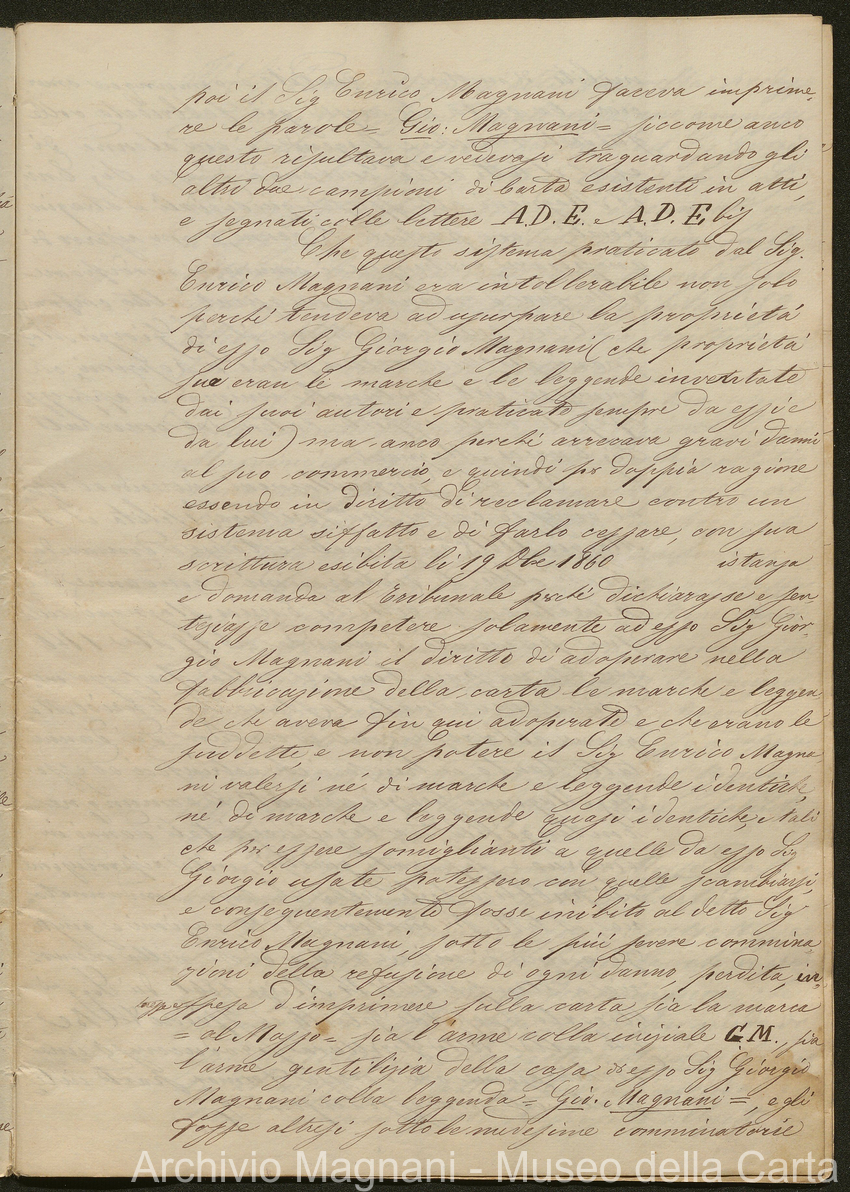 poi il Sig Enrico Magnani faceva imprime,
re le parole = Gio: Magnani = siccome anco
questo risultava e vedevasi traguardando gli
altri due campioni di Carta esistenti in atti,
e segnati colle lettere A.D.E. e A.D.E bis
Che questo sistema praticato dal Sig.
Enrico Magnani era intollerabile non solo
perché tendeva ad usurpare la proprietà
di esso Sig Giorgio Magnani (che proprietà
sua eran le marche e le leggende inventate
dai suoi autori e praticate sempre da essi e
da lui) ma anco perché arrecava gravi danni
al suo commercio, e quindi per doppia ragione
essendo in diritto di reclamare contro un
sistema siffatto e di farlo cessare, con sua
scrittura esibita li 19 Xbe 1860 istanza
e domanda al Tribunale perché dichiarasse e sen-
tenziasse competere solamente ad esso Sig Gior-
gio Magnani il diritto di adoperare nella
fabbricazione della carta le marche e leggen
de che aveva fin qui adoperate e che erano le
suddette, e non potere il Sig Enrico Magna
ni valersi né di marche e leggende identiche,
né di marche e leggende quasi identiche, e tali
che per essere somiglianti a quelle da esso Sig
Giorgio usate potessero con quelle scambiarsi
e conseguentemente fosse inibito al detto Sig
Enrico Magnani, sotto le più severe commina,
zioni della refusione di ogni danno, perdita, in-
spesa d'imprimere sulla carta sia la marca
= al Masso = sia l'arme colla iniziale G.M. sia
l'arme gentilizia della casa di esso Sig Giorgio
Magnani colla leggenda = Gio. Magnani =, e gli
fosse altresì sotto le medesime comminatorie
Archivio Magnani - Museo della Carta